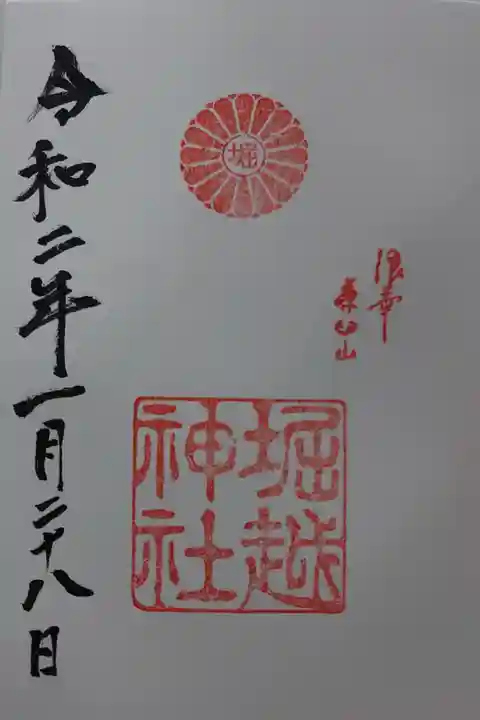 堀
浪華
茶臼山
堀越
神社
令和二年一月二十八日